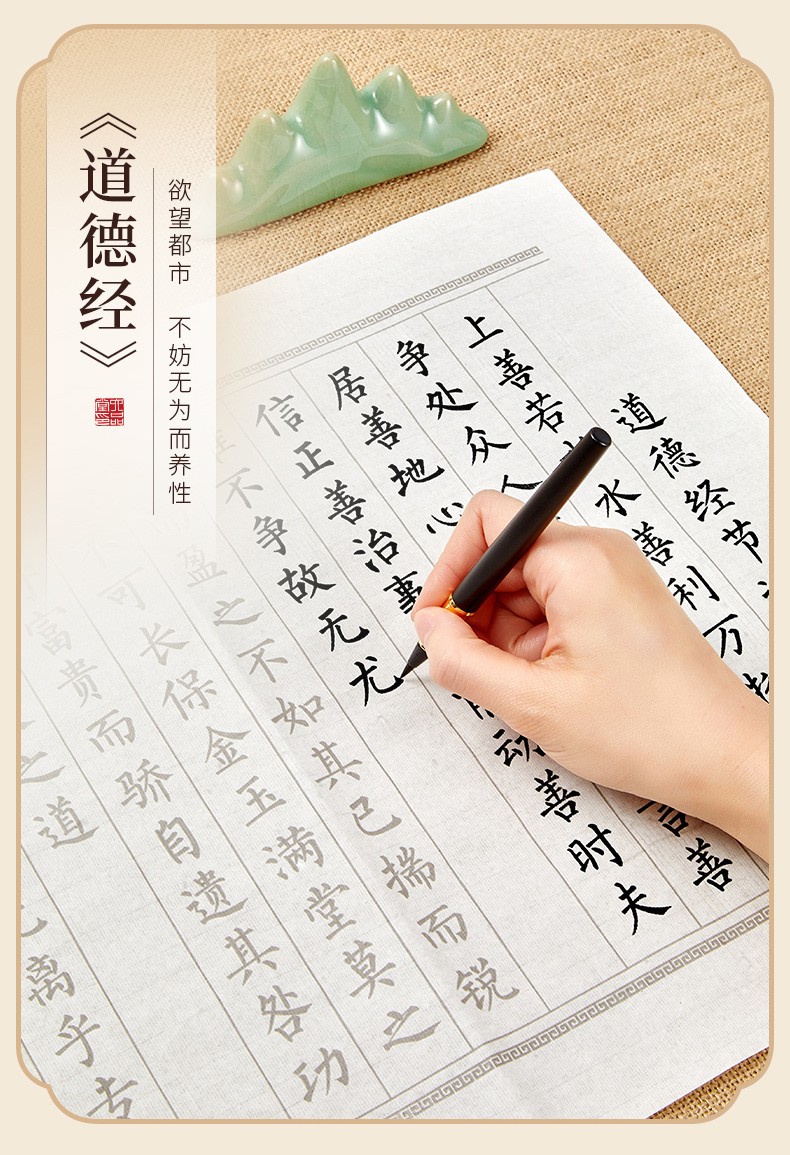 《道德经》
欲望都市 不妨无为而养性
道德经节
上善若水善利万
争处众人
居善地心言善
信正善治事动善时夫
不争故无尤
盈之不如其已揣而锐
可长保金玉满堂莫之
富贵而骄自遗其咎功
之道
离乎专